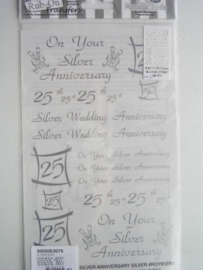 Rub-On
Transfers
On Your
Silver
Anniversary
25th 25th 25th 25th
25
Silver Wedding Anniversary
Silver Wedding Anniversary
25
On Your Silver Anniversary
On Your Silver Anniversary
On Your Silver Anniversary
25
25th 25th 25th
On Your
Silver
Anniversary
25
SILVER ANNIVERSARY SILVER